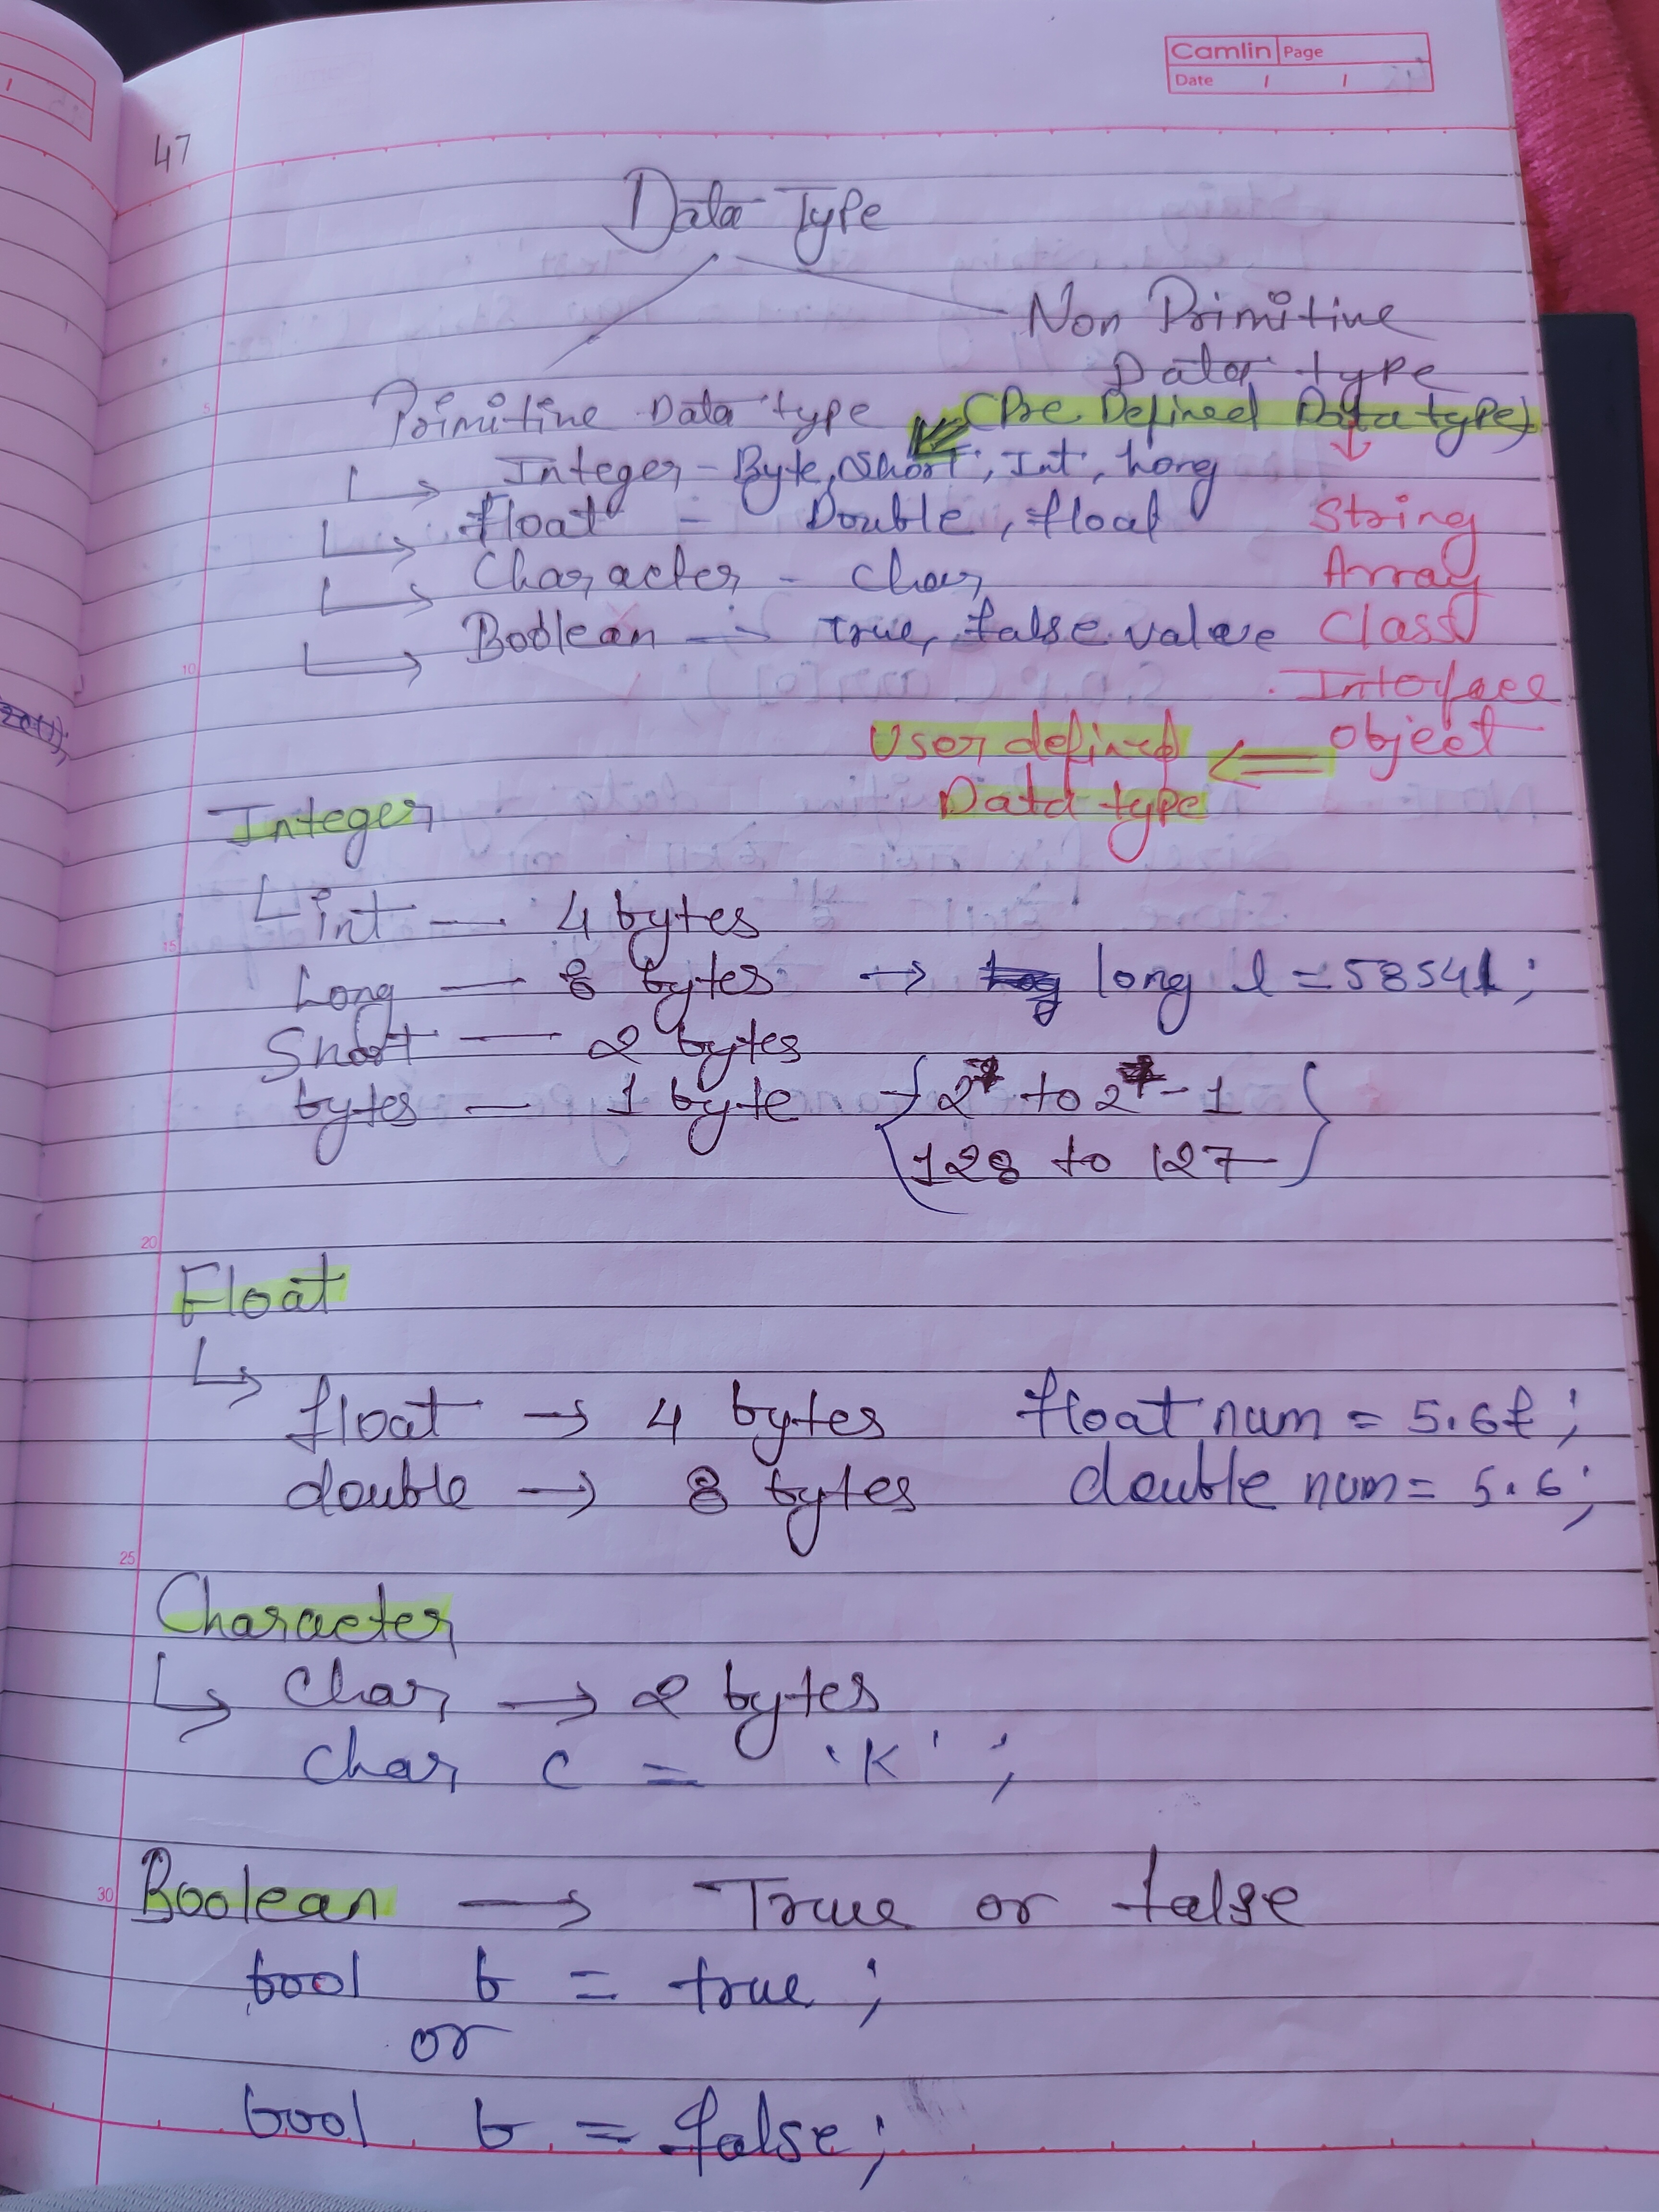 Camlin Page
Date / /
47
Data Type
Non Primitive
Data type
Primitive Data type (Pre Defined Data type)
Integer - Byte, Short, Int, Long
float - Double, float
Character - char
Boolean - True, false value
String
Array
Class
Interface
object
User defined
Data type
Integer
int - 4 bytes
Long - 8 bytes → long l = 5854L;
Short - 2 bytes
bytes - 1 byte {-2⁷ to 2⁷-1
-128 to 127}
Float
float → 4 bytes float num = 5.6f;
double → 8 bytes double num = 5.6;
Character
Char → 2 bytes
char c = 'K' ;
Boolean → True or false
bool b = true ;
or
bool b = false;
5
10
15
20
25
30